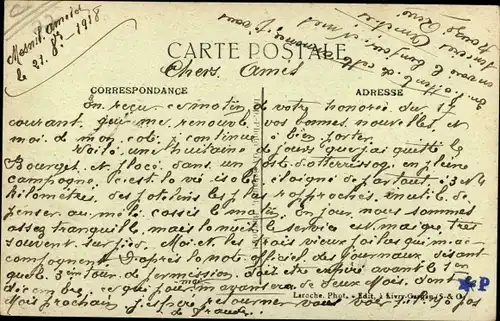 Mesnil Amelot
le 21. 8bre 1918
CARTE POSTALE
Chers Amis
CORRESPONDANCE
ADRESSE
En reçu ce matin de votre honorée du 17
courant, qui me renouvele vos bonnes nouvelles, et
moi de mon coté, je continue à bien porter.
Voilà une huitaine de jours que j'ai quitté le
Bourget, et placé dans un poste d'atterissage en pleine
campagne, c'est la vie isolé éloigné de partout à 3 K
kilométres, des patelins les plus rapprochés, inutile de
penser au mêlé cassis le matin. En jour nous sommes
assez tranquille, mais la nuit le service est maigre, très
souvent sur pied. Moi et les trois vieux poilus qui m'ac-
compagnent. D'après la note officiel des journaux disant
que le 3em tour de permission doit être expiré avant le 1er
décembre, ce qui me avancera de deux mois, dont le
Mois prochain j'espère retourner vous voir s'il n'y a pas
de fraude.
Laroche, Phot. - Edit. à Livry-Gargan (S.-&-O.)
P